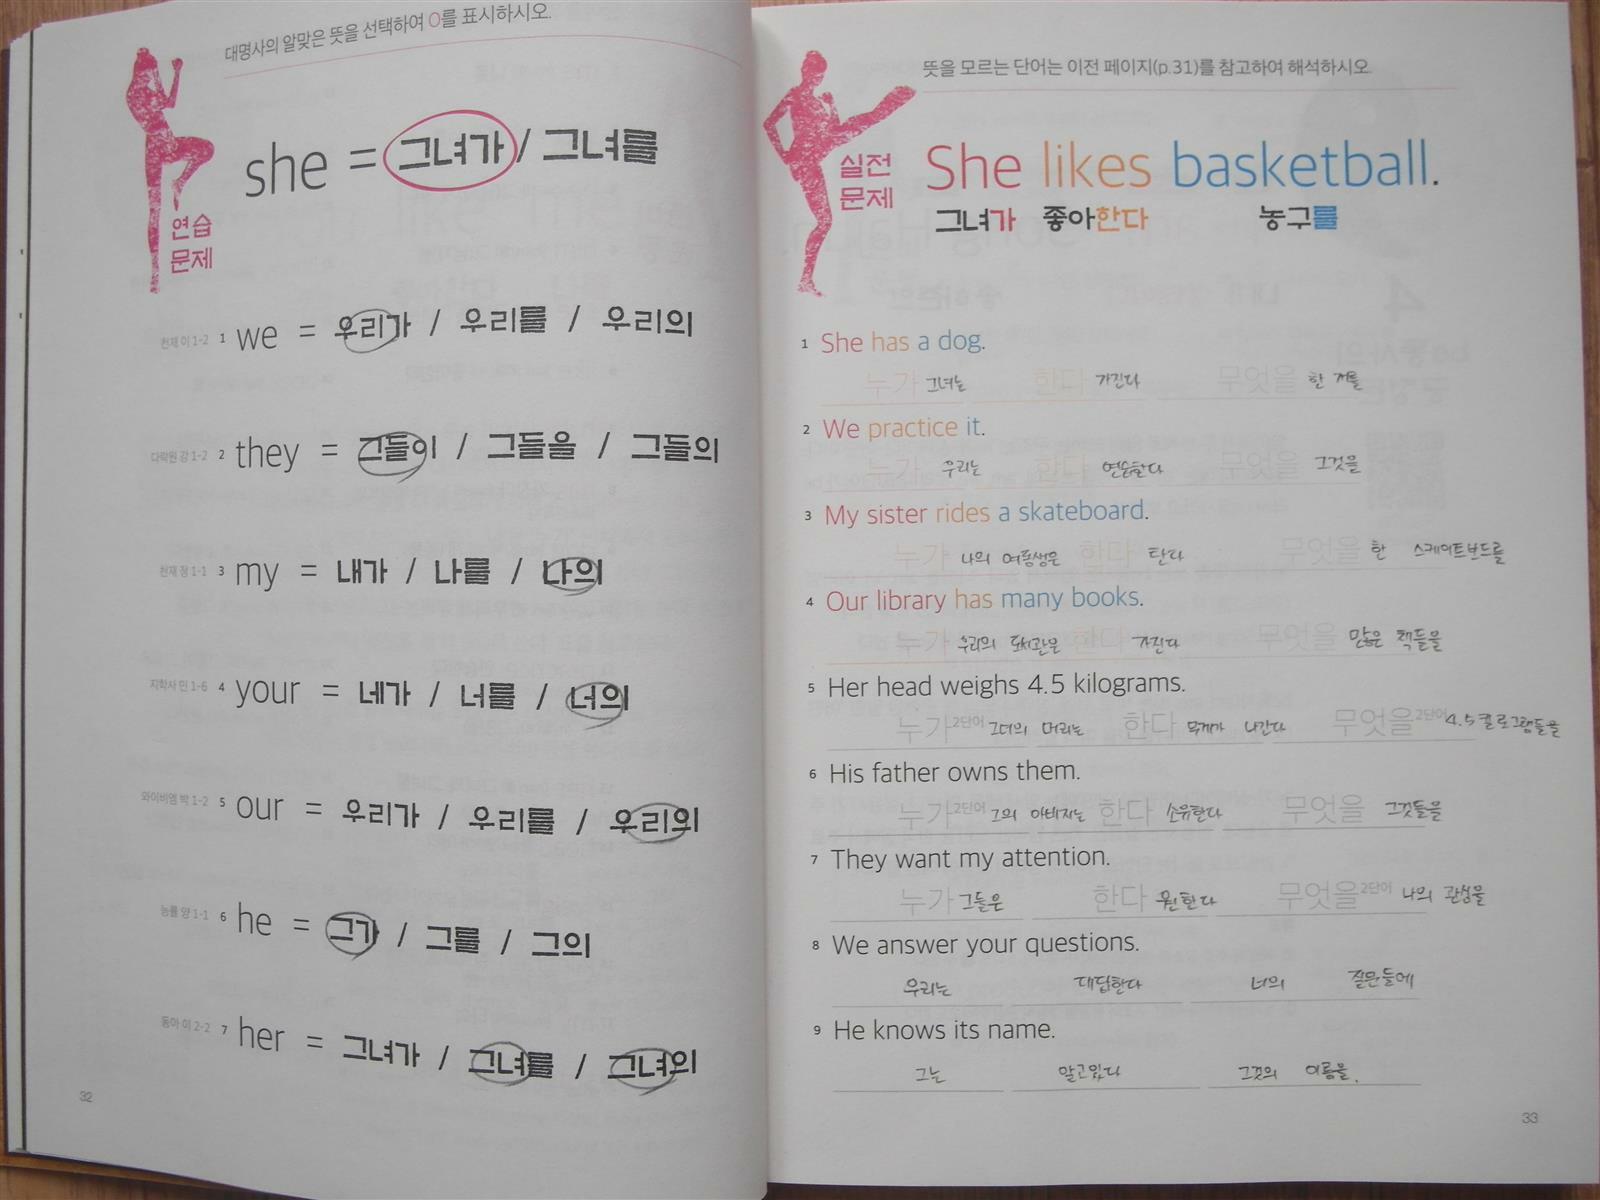 대명사의 알맞은 뜻을 선택하여 O를 표시하시오.
she = 그녀가 / 그녀를
연습
문제
천재 이 1-2 1 we = 우리가 / 우리를 / 우리의
다락원 강 1-2 2 they = 그들이 / 그들을 / 그들의
천재 정 1-1 3 my = 내가 / 나를 / 나의
지학사 민 1-6 4 your = 네가 / 너를 / 너의
와이비엠 박 1-2 5 our = 우리가 / 우리를 / 우리의
능률 양 1-1 6 he = 그가 / 그를 / 그의
동아 이 2-2 7 her = 그녀가 / 그녀를 / 그녀의
32
뜻을 모르는 단어는 이전 페이지(p.31)를 참고하여 해석하시오.
실전
문제
She likes basketball.
그녀가 좋아한다 농구를
1 She has a dog.
누가 그녀는 한다 가진다 무엇을 한
2 We practice it.
누가 우리는 한다 연습한다 무엇을 그것을
3 My sister rides a skateboard.
누가 나의 여동생은 한다 탄다 무엇을 한 스케이트보드를
4 Our library has many books.
누가 우리의 도서관은 한다 가진다 무엇을 많은 책들을
5 Her head weighs 4.5 kilograms.
누가 2단어 그녀의 머리는 한다 무게가 나간다 무엇을 2단어 4.5킬로그램들을
6 His father owns them.
누가 2단어 그의 아버지는 한다 소유한다 무엇을 그것들을
7 They want my attention.
누가 그들은 한다 원한다 무엇을 2단어 나의 관심을
8 We answer your questions.
우리는 대답한다 너의 질문들에
9 He knows its name.
그는 알고있다 그것의 이름을.
33